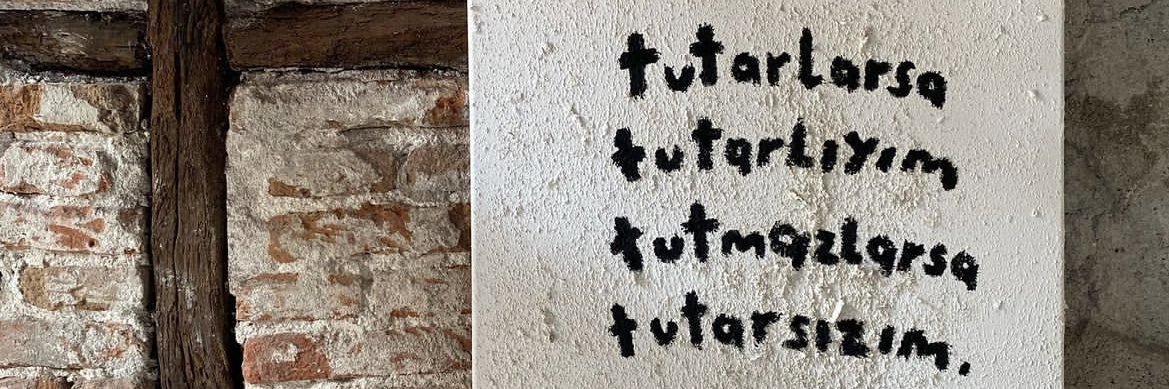 tutarlarsa
tutarlıyım
tutmazlarsa
tutarsızım.